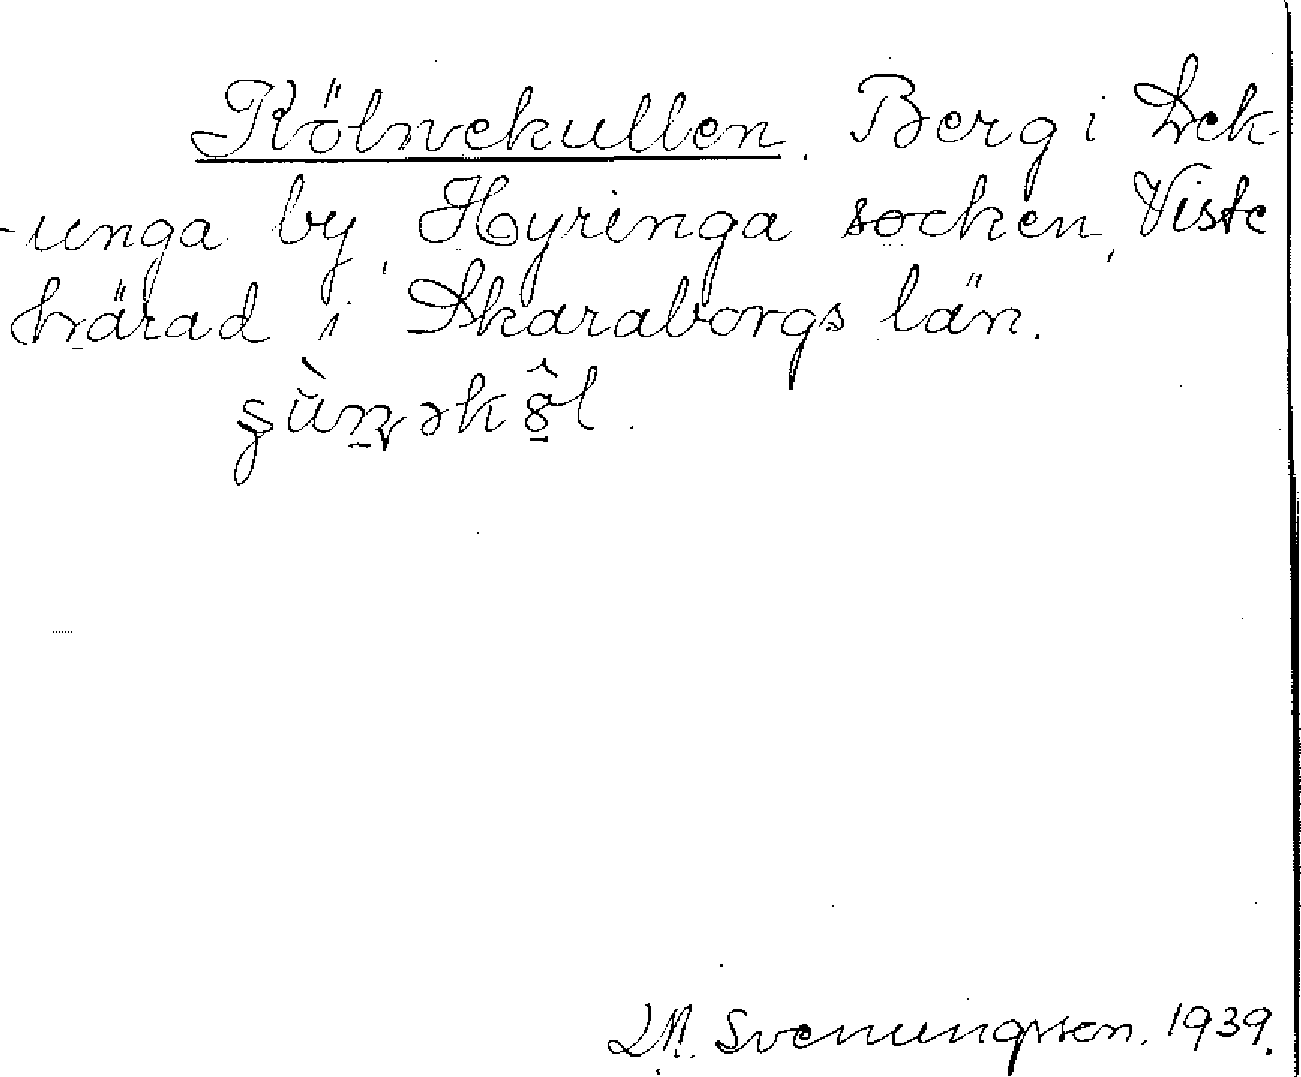 Kölnekullen. Berg i Lek-
-unga by, Hyringa socken, Viste
härad i Skaraborgs län.
Svenungsson. 1939.